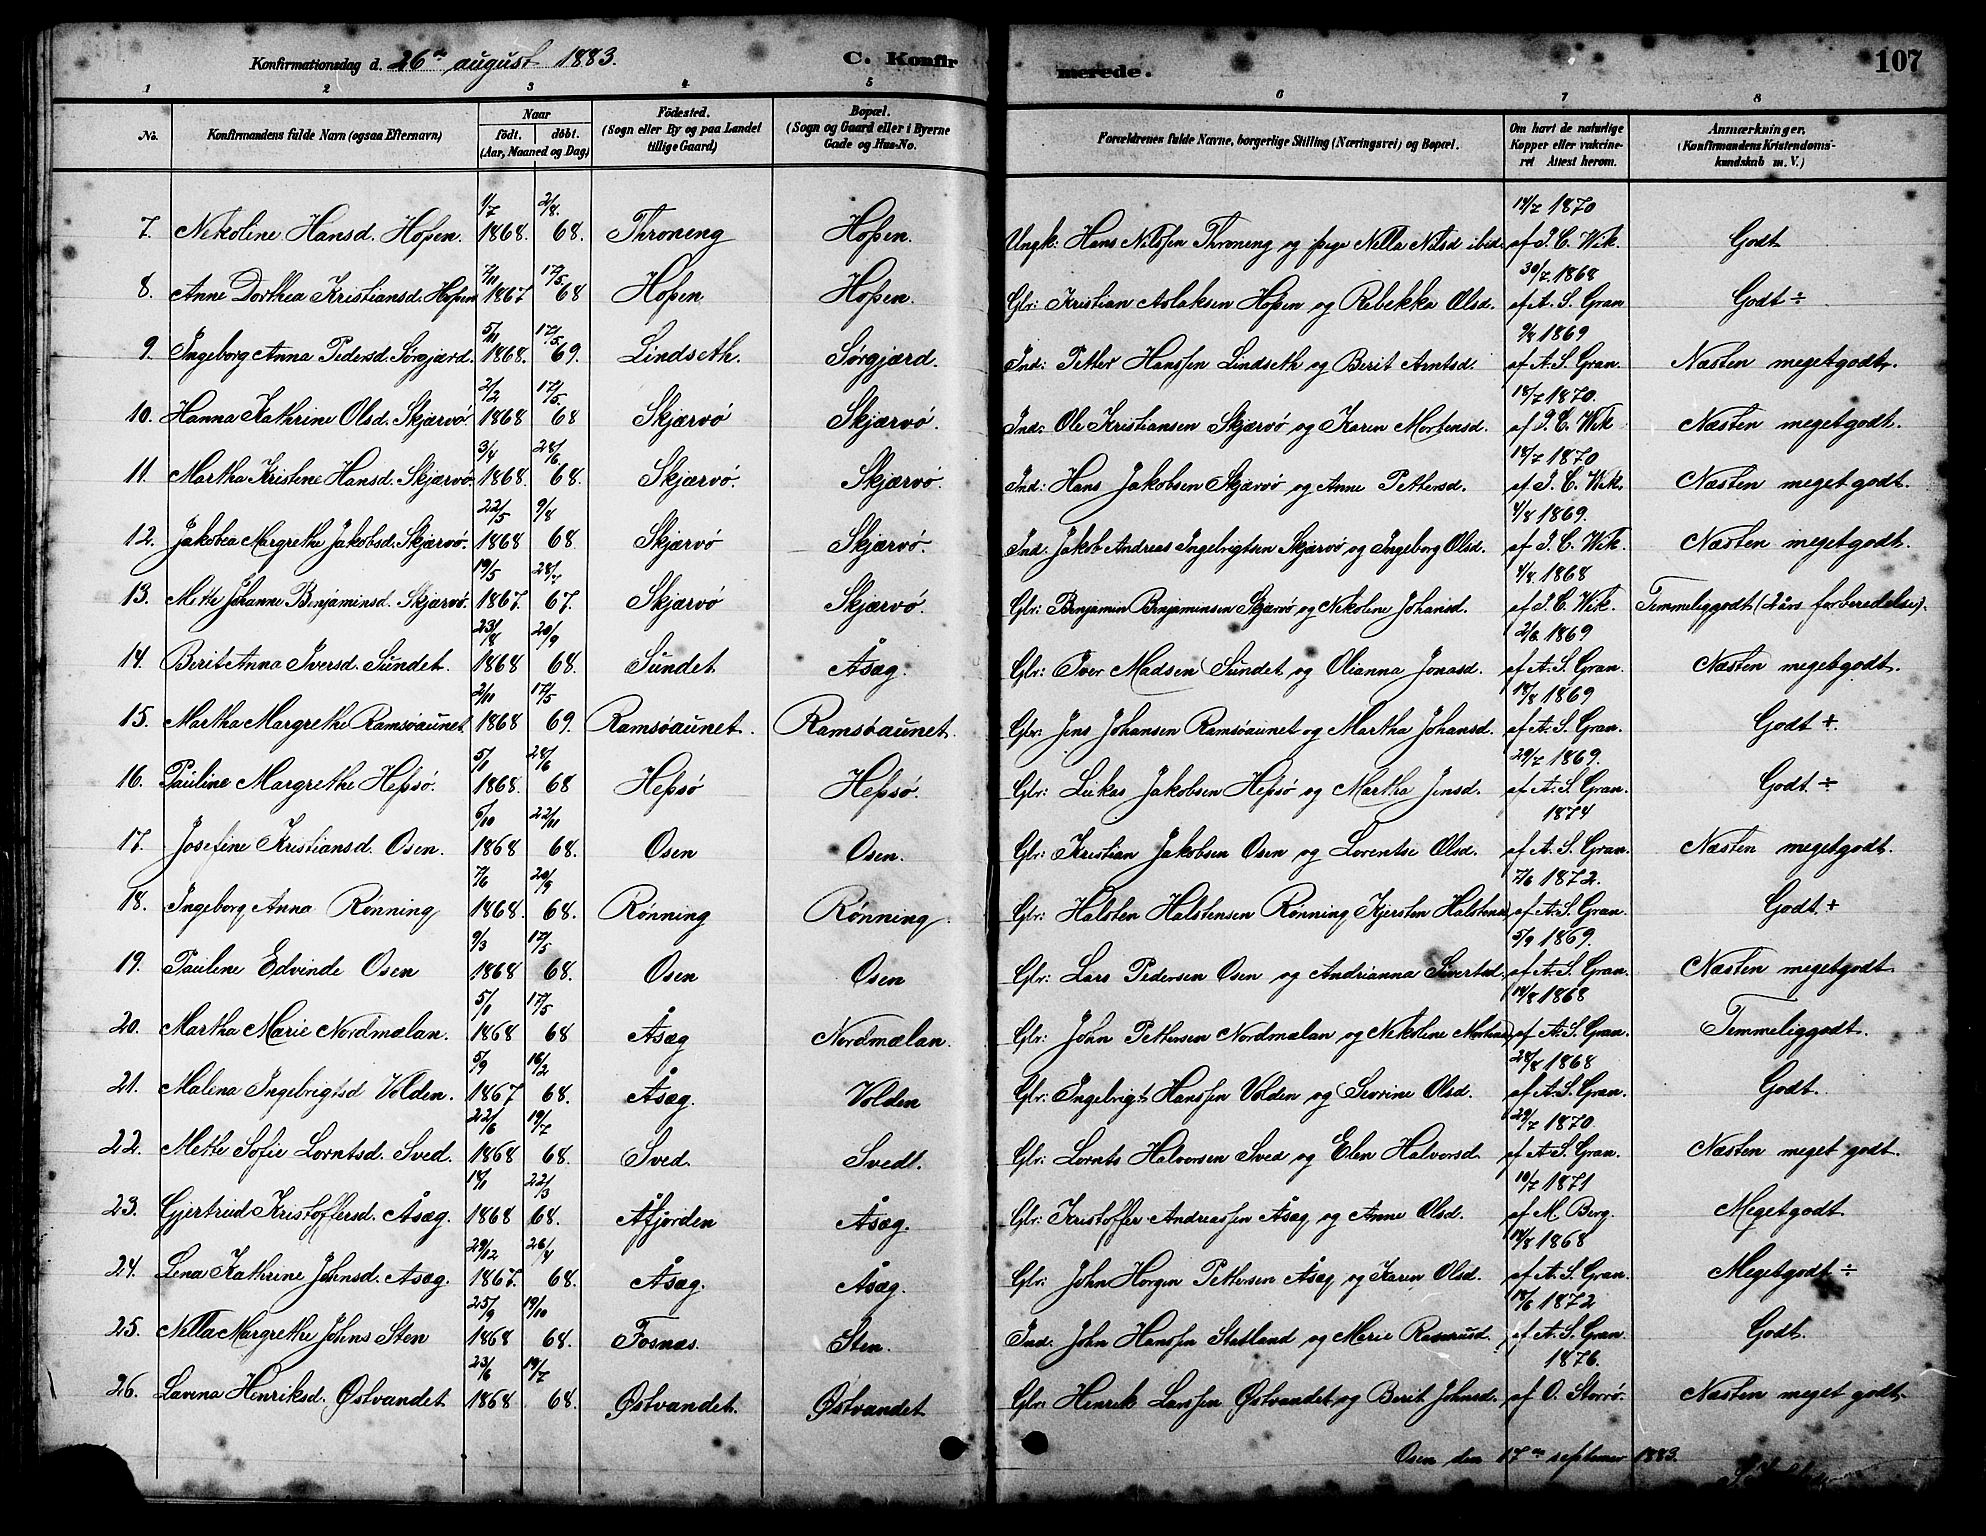 Konfirmationsdag d. 26de august 1883. C. Konfirmerede. 107
1 2 3 4 5 6 7 8
No. Konfirmandens fulde Navn (ogsaa Efternavn) Naar født. døbt. (Aar, Maaned og Dag) Fødested. (Sogn eller By og paa Landet tillige Gaard) Bopæl. (Sogn og Gaard eller i Byerne Gade og Hus-No. Forældrenes fulde Navne, borgerlige Stilling (Næringsvei) og Bopæl. Om havt de naturlige Kopper eller vakcineret Attest herom. Anmærkninger. (Konfirmandens Kristendomskundskab m. V.)
1/7 2/8. 18/7 1870
7. Nikoline Hansd. Hopen. 1868. 68. Throneng Hopen. Ungk: Hans Nilssen Throneng og pige Nella Nilsd ibid. af I. C. Wik. Godt
7/11 17/5. 30/7 1868
8. Anne Dorthea Kristiansd. Hopen 1867 68 Hopen Hopen. Glr: Kristian Aslaksen Hopen og Rebekka Olsd. af A. S. Gran Godt ÷
5/11 17/5. 9/8 1869
9. Ingeborg Anna Pedersd. Sørgjærd. 1868. 69. Lindseth. Sørgjærd. Ind: Petter Hanssen Lindseth og Berit Arntsd. af A. S. Gran. Næsten megetgodt.
2/2 17/5. 18/7 1870.
10. Hanna Kathrine Olsd. Skjærvø 1868 68 Skjærvø Skjærvø. Ind: Ole Kristiansen Skjærvø og Karen Mortensd. af I. C. Wik Næsten megetgodt.
3/4 28/6. 18/7 1870
11. Martha Kristine Hansd. Skjærvø. 1868. 68. Skjærvø. Skjærvø. Ind: Hans Jakobsen Skjærvø og Anne Pettersd. af I. C. Wik. Næsten meget godt.
22/5 9/8 4/8 1869.
12. Jakobea Margrethe Jakobsd. Skjærvø. 1868 68. Skjærvø Skjærvø. Ind. Jakob Andreas Ingebrigtsen Skjærvø og Ingeborg Olsd. af I. C. Wik. Næsten megetgodt.
19/5 28/7 4/8. 1868
13. Mette Johanne Benjaminsd. Skjærvø. 1867. 67. Skjærvø Skjærvø. Glr: Benjamin Benjaminsen Skjærvø og Nikoline Johansd. af I. C. Wik. Temmeliggodt (2 års forberedelse).
23/8 20/9 2/8 1869
14. Berit Anna Iversd. Sundet. 1868 68. Sundet Åsæg. Glr: Iver Madsen Sundet og Olianna Jonasd. af A. S. Gran. Næsten megetgodt.
2/11 17/5 18/8 1869
15. Martha Margrethe Ramsøaunet 1868 69. Ramsøaunet. Ramsøaunet. Glr: Jens Johansen Ramsøaunet og Martha Johansd. af A. S. Gran. Godt +
5/1 28/6 29/7 1869.
16. Pauline Margrethe Hepsø. 1868. 68 Hepsø Hepsø. Glr: Lukas Jakobsen Hepsø og Martha Jensd. af A. S. Gran. Godt ÷
6/10 22/11 1874
17. Josefine Kristiansd. Osen. 1868 68. Osen Osen. Glr: Kristian Jakobsen Osen og Lorentse Olsd. af A. S. Gran. Næsten megetgodt.
7/6 20/9 7/6 1872.
18. Ingeborg Anna Rønning 1868. 68. Rønning Rønning. Glr: Halsten Halstensen Rønning Kjersten Halstens af A. S. Gran. Godt. +
9/3 17/5 5/9 1869.
19. Pauline Edvinde Osen 1868 68. Osen Osen Glr: Lars Pedersen Osen og Andrianna Sivertsd. af A. S. Gran. Næsten megetgodt
5/1 17/5 14/8 1868
20. Martha Marie Nordmælan. 1868 68 Åsæg Nordmælan. Glr: John Pettersen Nordmælan og Nikoline af A. S. Gran. Temmeliggodt.
5/9 16/2 28/8 1868
21. Malena Ingebrigtsd Volden. 1867 68. Åsæg. Volden Glr: Ingebrigt Hanssen Volden og Sevrine Olsd. af A. S. Gran. Godt.
22/6 19/7 29/7 1870.
22. Mette Sofie Lorntsd. Sved. 1868 68. Sved. Svedl. Glr: Lornts Halvorsen Sved og Elen Halvorsd. af A. S. Gran. Næsten meget godt.
18/1 22/3 10/7 1871
23. Gjertrud Kristoffersd. Åsæg. 1868 68. Åfjorden Åsæg. Glr: Kristoffer Andreassen Åsæg og Anne Olsd. af M Berg. Megetgodt
29/12 26/4 14/8 1868
24. Lena Kathrine Johnsd. Åsæg. 1867. 68. Åsæg. Åsæg. Glr: John Horgen Pettersen Åsæg og Karen Olsd. af A. S. Gran. Megetgodt ÷
25/9 19/10 18/6 1872
25. Nella Margrethe Johns Sten 1868 68. Fosnæs. Sten. Ind: John Hanssen Statland og Marie Rasmusd. af A. S. Gran. Godt.
23/6 19/7 1876.
26. Lavina Henriksd. Østvandet 1868 68. Østvandet. Østvandet Glr: Henrik Larssen Østvandet og Berit Johnsd. af O. Storrø. Næsten meget godt.
Osen den 17de septemer 1883.